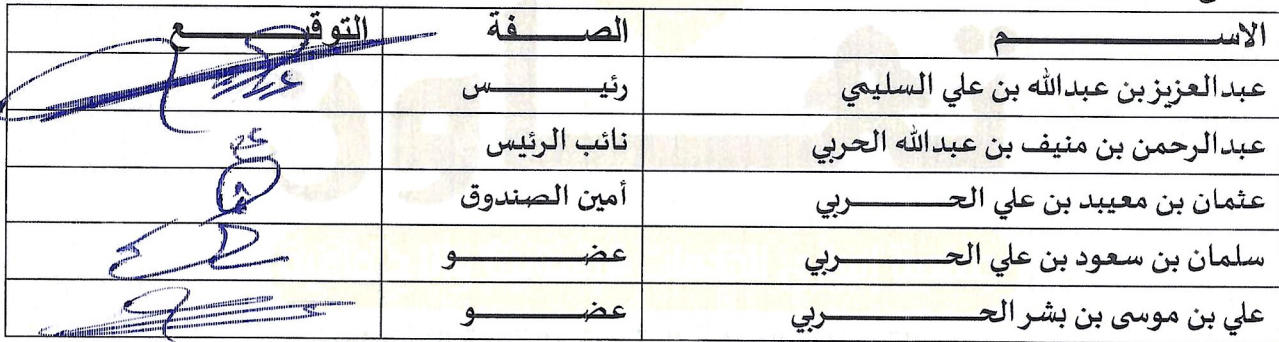 الاســـم الصـــفة التوقـــيع
عبدالعزيز بن عبدالله بن علي السليمي رئيـــس
عبدالرحمن بن منيف بن عبدالله الحربي نائب الرئيس
عثمان بن معيبد بن علي الحـــربي أمين الصندوق
سلمان بن سعود بن علي الحـــربي عضـــو
علي بن موسى بن بشر الحـــربي عضـــو